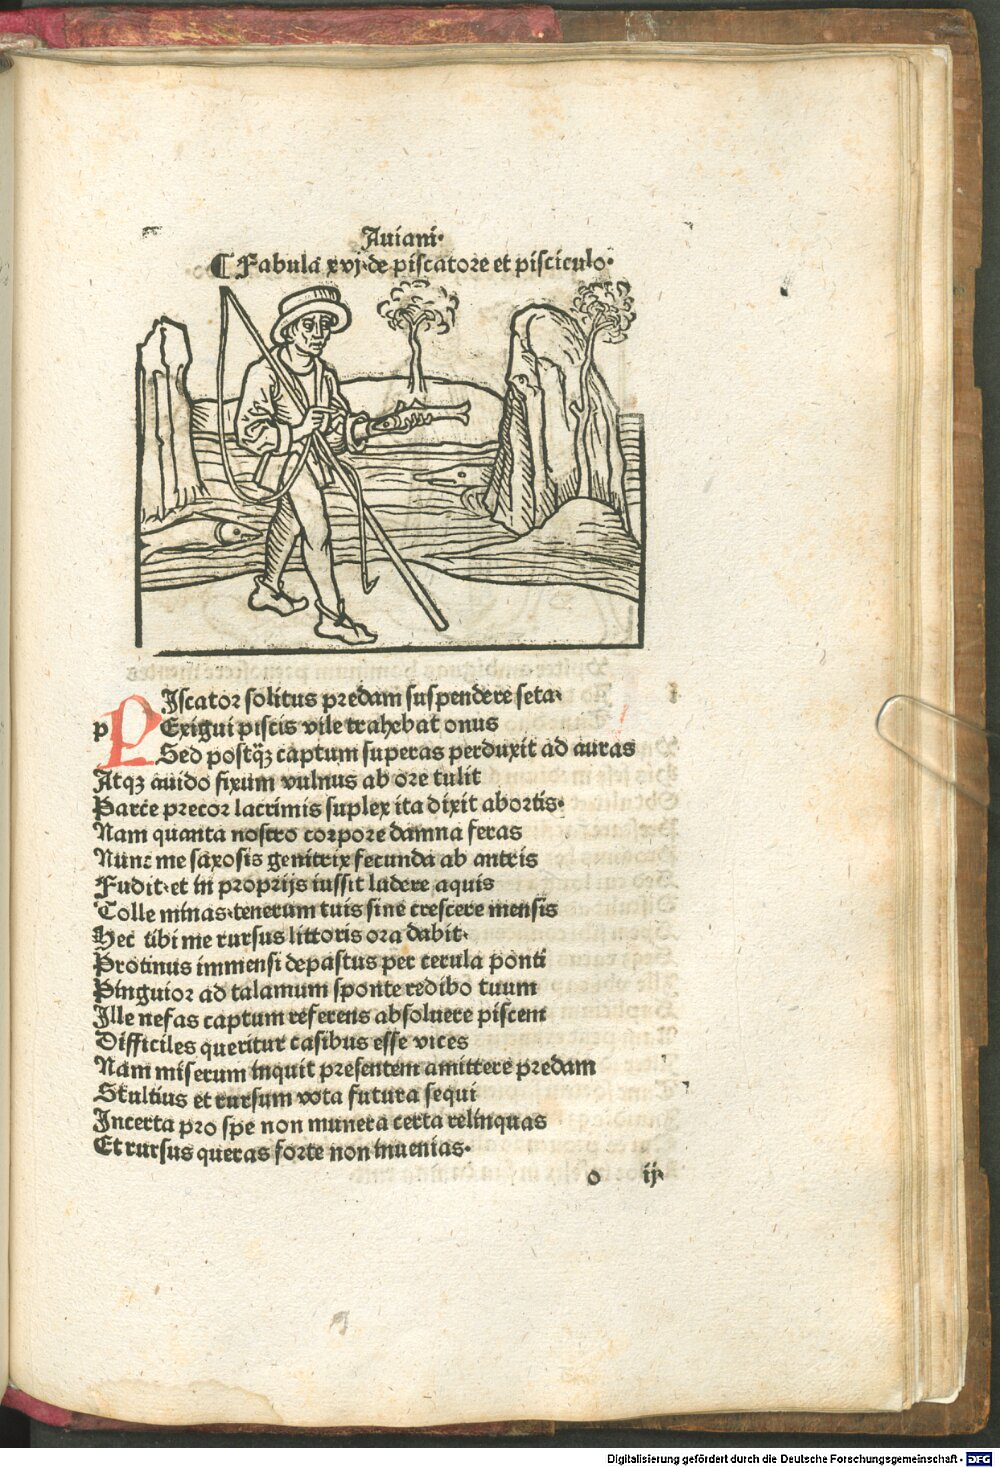 Auiani·
¶ Fabula xvj·de piscatore et pisciculo·
PIscator solitus predam suspendere seta·
p Exigui piscis vile trahebat onus
Sed postqꝫ captum superas perduxit ad auras
Atqꝫ auido fixum vulnus ab ore tulit
Parce precor lacrimis suplex ita dixit abortis·
Nam quanta nostro corpore damna feras
Nunc me saxosis genitrix fecunda ab antris
Fudit·et in proprijs iussit ludere aquis
Tolle minas·tenerum tuis sine crescere mensis
Hec tibi me rursus littoris ora dabit·
Protinus immensi depastus per cerula ponti
Pinguior ad talamum sponte redibo tuum
Ille nefas captum referens absoluere piscem
Difficiles queritur casibus esse vices
Nam miserum inquit presentem amittere predam
Stultius et rursum vota futura sequi
Incerta pro spe non munera certa relinquas
Et rursus queras forte non inuenias·
o ij·
Digitalisierung gefördert durch die Deutsche Forschungsgemeinschaft - DFG